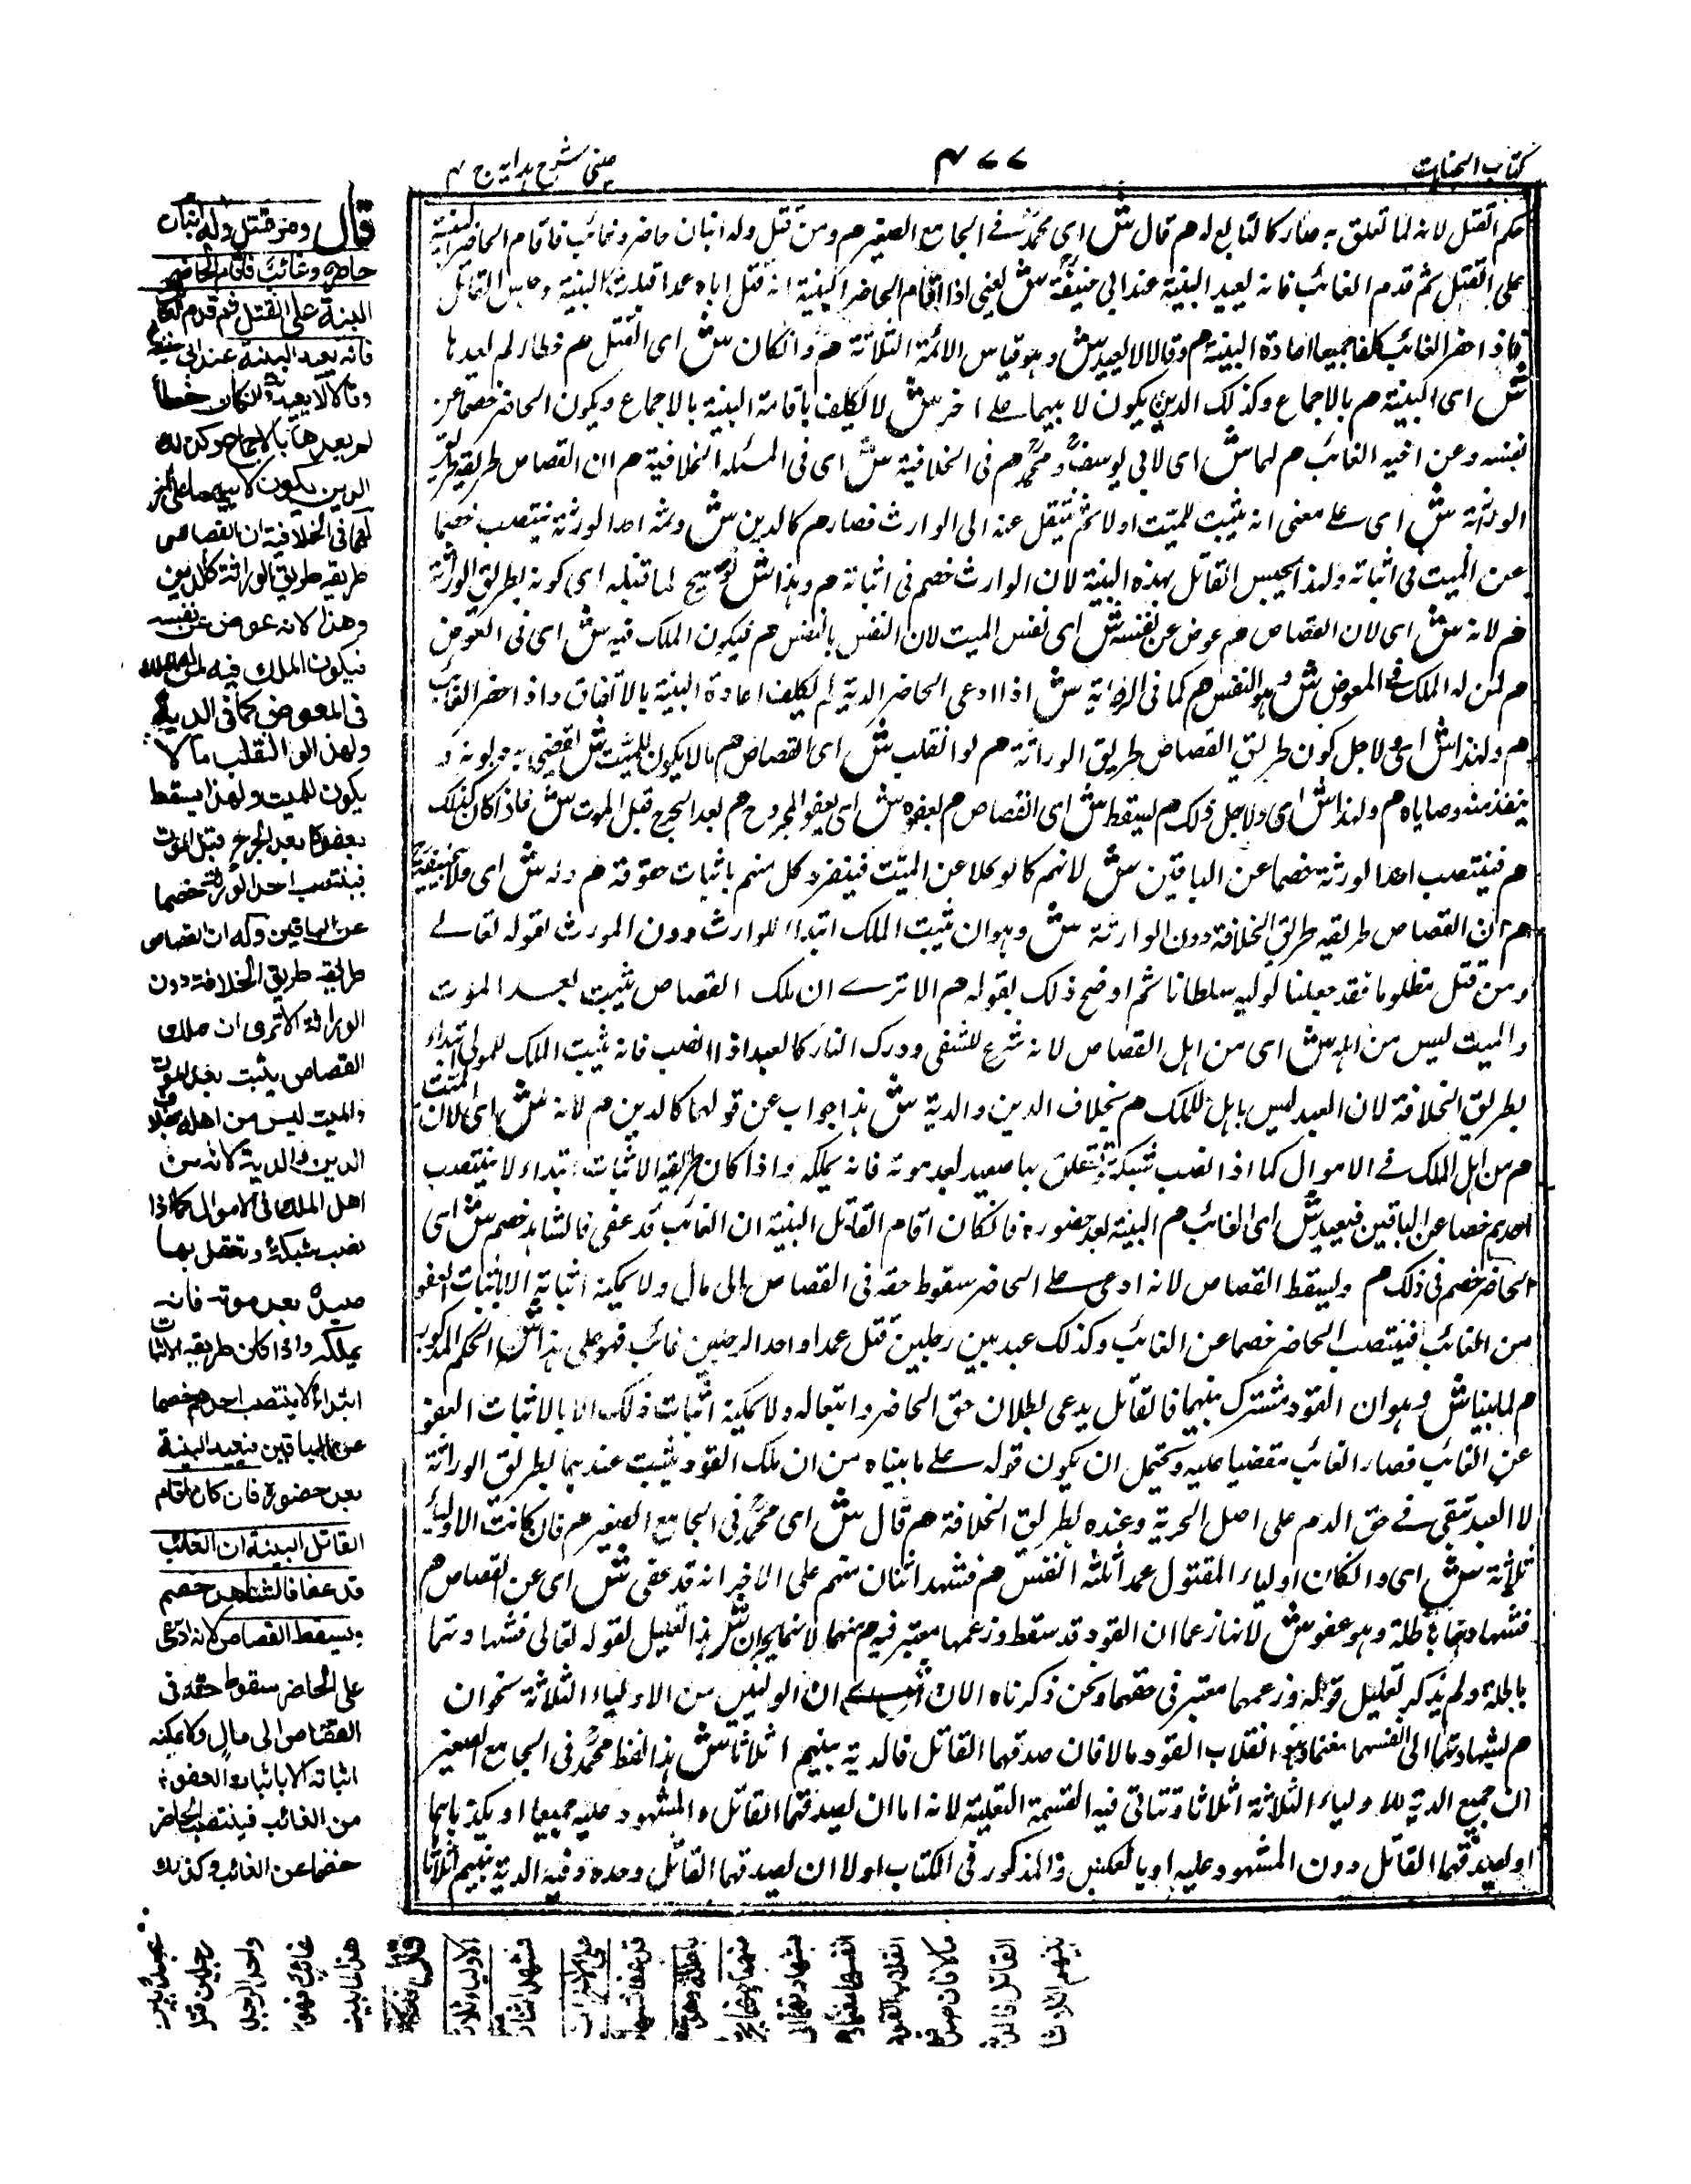 كتاب الجنايات
٤٧٧
عینی شرح ہدایہ ج ٤
حكم القتل لانه لما تعلق به صار كالتابع له هم قال ش اى محمد فى الجامع الصغير هم ومن قتل وله ابنان حاضر وغائب فاقام الحاضر البينة
على القتل ثم قدم الغائب فانه يعيد البينة عند ابى حنيفة ش يعنى اذا اقام الحاضر البينة انه قتل اباه عمدا قبلت البينة وحبس القاتل
فاذا حضر الغائب كلفا جميعا اعادة البينة هم وقالا لا يعيد ش وهو قياس الائمة الثلاثة هم وانكان ش اى القتل هم خطأ لم يعدها
ش اى البينة هم بالاجماع وكذلك الدين يكون لابيهما على اخر ش لا يكلف باقامة البينة بالاجماع ويكون الحاضر خصما عن
نفسه وعن اخيه الغائب هم لهما ش اى لابى يوسف ومحمد هم فى الخلافية ش اى فى المسئلة الخلافية هم ان القصاص طريقه طريق
الوراثة ش اى على معنى انه يثبت للميت اولا ثم ينتقل عنه الى الوارث فصار هم كالدين ش وثمه احد الورثة ينتصب خصما
عن الميت فى اثباته ولهذا يحبس القاتل بهذه البينة لان الوارث خصم فى اثباته هم وهذا ش توضيح لما قبله اى كونه بطريق الوراثة
هم لانه ش اى لان القصاص هم عوض عن نفسه ش اى نفس الميت لان النفس بالنفس هم فيكون الملك فيه ش اى فى العوض
هم لمن له الملك فى المعوض ش وهو النفس هم كما فى الدية ش اذا ادعى الحاضر الدية لم يكلف اعادة البينة بالاتفاق واذا حضر الغائب
هم ولهذا ش اى ولاجل كون طريق القصاص طريق الوراثة هم لو انقلب ش اى القصاص هم مالا يكون للميت ش يقضى به ديونه و
ينفذ منه وصاياه هم ولهذا ش اى ولاجل ذلك هم يسقط ش اى القصاص هم بعفوه ش اى بعفو المجروح هم بعد الجرح قبل الموت ش فاذا كان كذلك
هم فينتصب احد الورثة خصما عن الباقين ش لانهم كالوكلاء عن الميت فينفرد كل منهم باثبات حقوقه هم وله ش اى ولابى حنيفة
هم ان القصاص طريقه طريق الخلافة دون الوراثة ش وهو ان يثبت الملك ابتداء للوارث دون المورث لقوله تعالى
ومن قتل مظلوما فقد جعلنا لوليه سلطانا ثم اوضح ذلك بقوله هم الا ترى ان ملك القصاص يثبت بعد الموت
والميت ليس من اهله ش اى من اهل القصاص لانه شرع للتشفى ودرك الثار كالعبد اذا اتهب فانه يثبت الملك للمولى ابتداء
بطريق الخلافة لان العبد ليس باهل للملك هم بخلاف الدين والدية ش هذا جواب عن قولهما كالدين هم لانه ش اى لان الميت
هم من اهل الملك فى الاموال كما اذا نصب شبكة وتعلق بها صيد بعد موته فانه يملكه واذا كان طريقه الاثبات ابتداء لا ينتصب
احدهم خصما عن الباقين فيعيد ش اى الغائب هم البينة بعد حضوره فانكان اقام القاتل البينة ان الغائب قد عفى فالشاهد خصم ش اى
الحاضر خصم فى ذلك هم ويسقط القصاص لانه ادعى على الحاضر سقوط حقه فى القصاص الى مال ولا يمكنه اثباته الا باثبات العفو
من الغائب فينتصب الحاضر خصما عن الغائب وكذلك عبد بين رجلين قتل عمدا واحد الرجلين غائب فهو على هذا ش اى الحكم المذكور
هم لما بينا ش وهو ان القود مشترك بينهما فالقاتل يدعى بطلان حق الحاضر وانتقاله ولا يمكنه اثبات ذلك الا بالاثبات العفو
عن الغائب فصار الغائب مقضيا عليه ويحتمل ان يكون قوله على ما بيناه من ان ملك القود يثبت عندهما بطريق الوراثة
لا العبد تبقى فى حق الدم على اصل الحرية وعنده بطريق الخلافة هم قال ش اى محمد فى الجامع الصغير هم فان كانت الاولياء
ثلاثة ش اى وانكان اولياء المقتول عمدا ثلثه انفس هم فشهد اثنان منهم على الاخر انه قد عفى ش اى عن القصاص هم
فشهادتهما باطلة وهو عفو ش لانهما زعما ان القود قد سقط وزعمهما معتبر فيه هم منهما لانهما يجران ش هذا تعليل لقوله تعالى فشهادتهما
باطلة ولم يذكر تعليل قوله وزعمهما معتبر فى حقهما ونحن ذكرناه الان ان الوليين من الاولياء الثلاثة يجران
هم بشهادتهما الى انفسهما مغنما وهو انقلاب القود مالا فان صدقهما القاتل فالدية بينهم اثلاثا ش هذا لفظ محمد فى الجامع الصغير
ان جميع الدية للاولياء الثلاثة اثلاثا وتتاتى فيه القسمة العقلية لانه اما ان يصدقهما القاتل والمشهود عليه جميعا او يكذباهما
او يصدقهما القاتل دون المشهود عليه او بالعكس والمذكور فى الكتاب اولا ان يصدقهما القاتل وحده وفيه الدية بينهم اثلاثا
قال ومن قتل وله ابنان
حاضر وغائب فاقام الحاضر
البينة على القتل ثم قدم الغائب
فانه يعيد البينة عند ابى حنيفة
وقالا لا يعيد وانكان خطأ
لم يعدها بالاجماع وكذلك
الدين يكون لابيهما على اخر
لهما فى الخلافية ان القصاص
طريقه طريق الوراثة كالدين
وهذا لانه عوض عن نفسه
فيكون الملك فيه لمن له الملك
فى المعوض كما فى الدية
ولهذا لو انقلب مالا
يكون للميت ولهذا يسقط
بعفوه بعد الجرح قبل الموت
فينتصب احد الورثة خصما
عن الباقين وله ان القصاص
طريقه طريق الخلافة دون
الوراثة الا ترى ان ملك
القصاص يثبت بعد الموت
والميت ليس من اهله بخلاف
الدين والدية لانه من
اهل الملك فى الاموال كما اذا
نصب شبكة وتعقل بها
صيد بعد موته فانه
يملكه واذا كان طريقه الاثبات
ابتداء لا ينتصب احدهم خصما
عن الباقين فيعيد البينة
بعد حضوره فان كان اقام
القاتل البينة ان الغائب
قد عفا فالشاهد خصم
ويسقط القصاص لانه ادعى
على الحاضر سقوط حقه فى
القصاص الى مال ولا يمكنه
اثباته الا باثبات العفو
من الغائب فينتصب الحاضر
خصما عن الغائب وكذلك
عبد بين
رجلين قتل
واحد الرجلين
غائب فهو
هذا لما بينا
قال فان كان
الاولياء ثلاثة
فشهد اثنان
على الاخر انه
قد عفا فشهاد
باطلة وهو عفو
منهما لانهما يجران
بشهادتهما الى
انفسهما مغنما وهو
انقلاب القود
مالا فان صدقهما
القاتل فالدية
بينهم اثلاثا